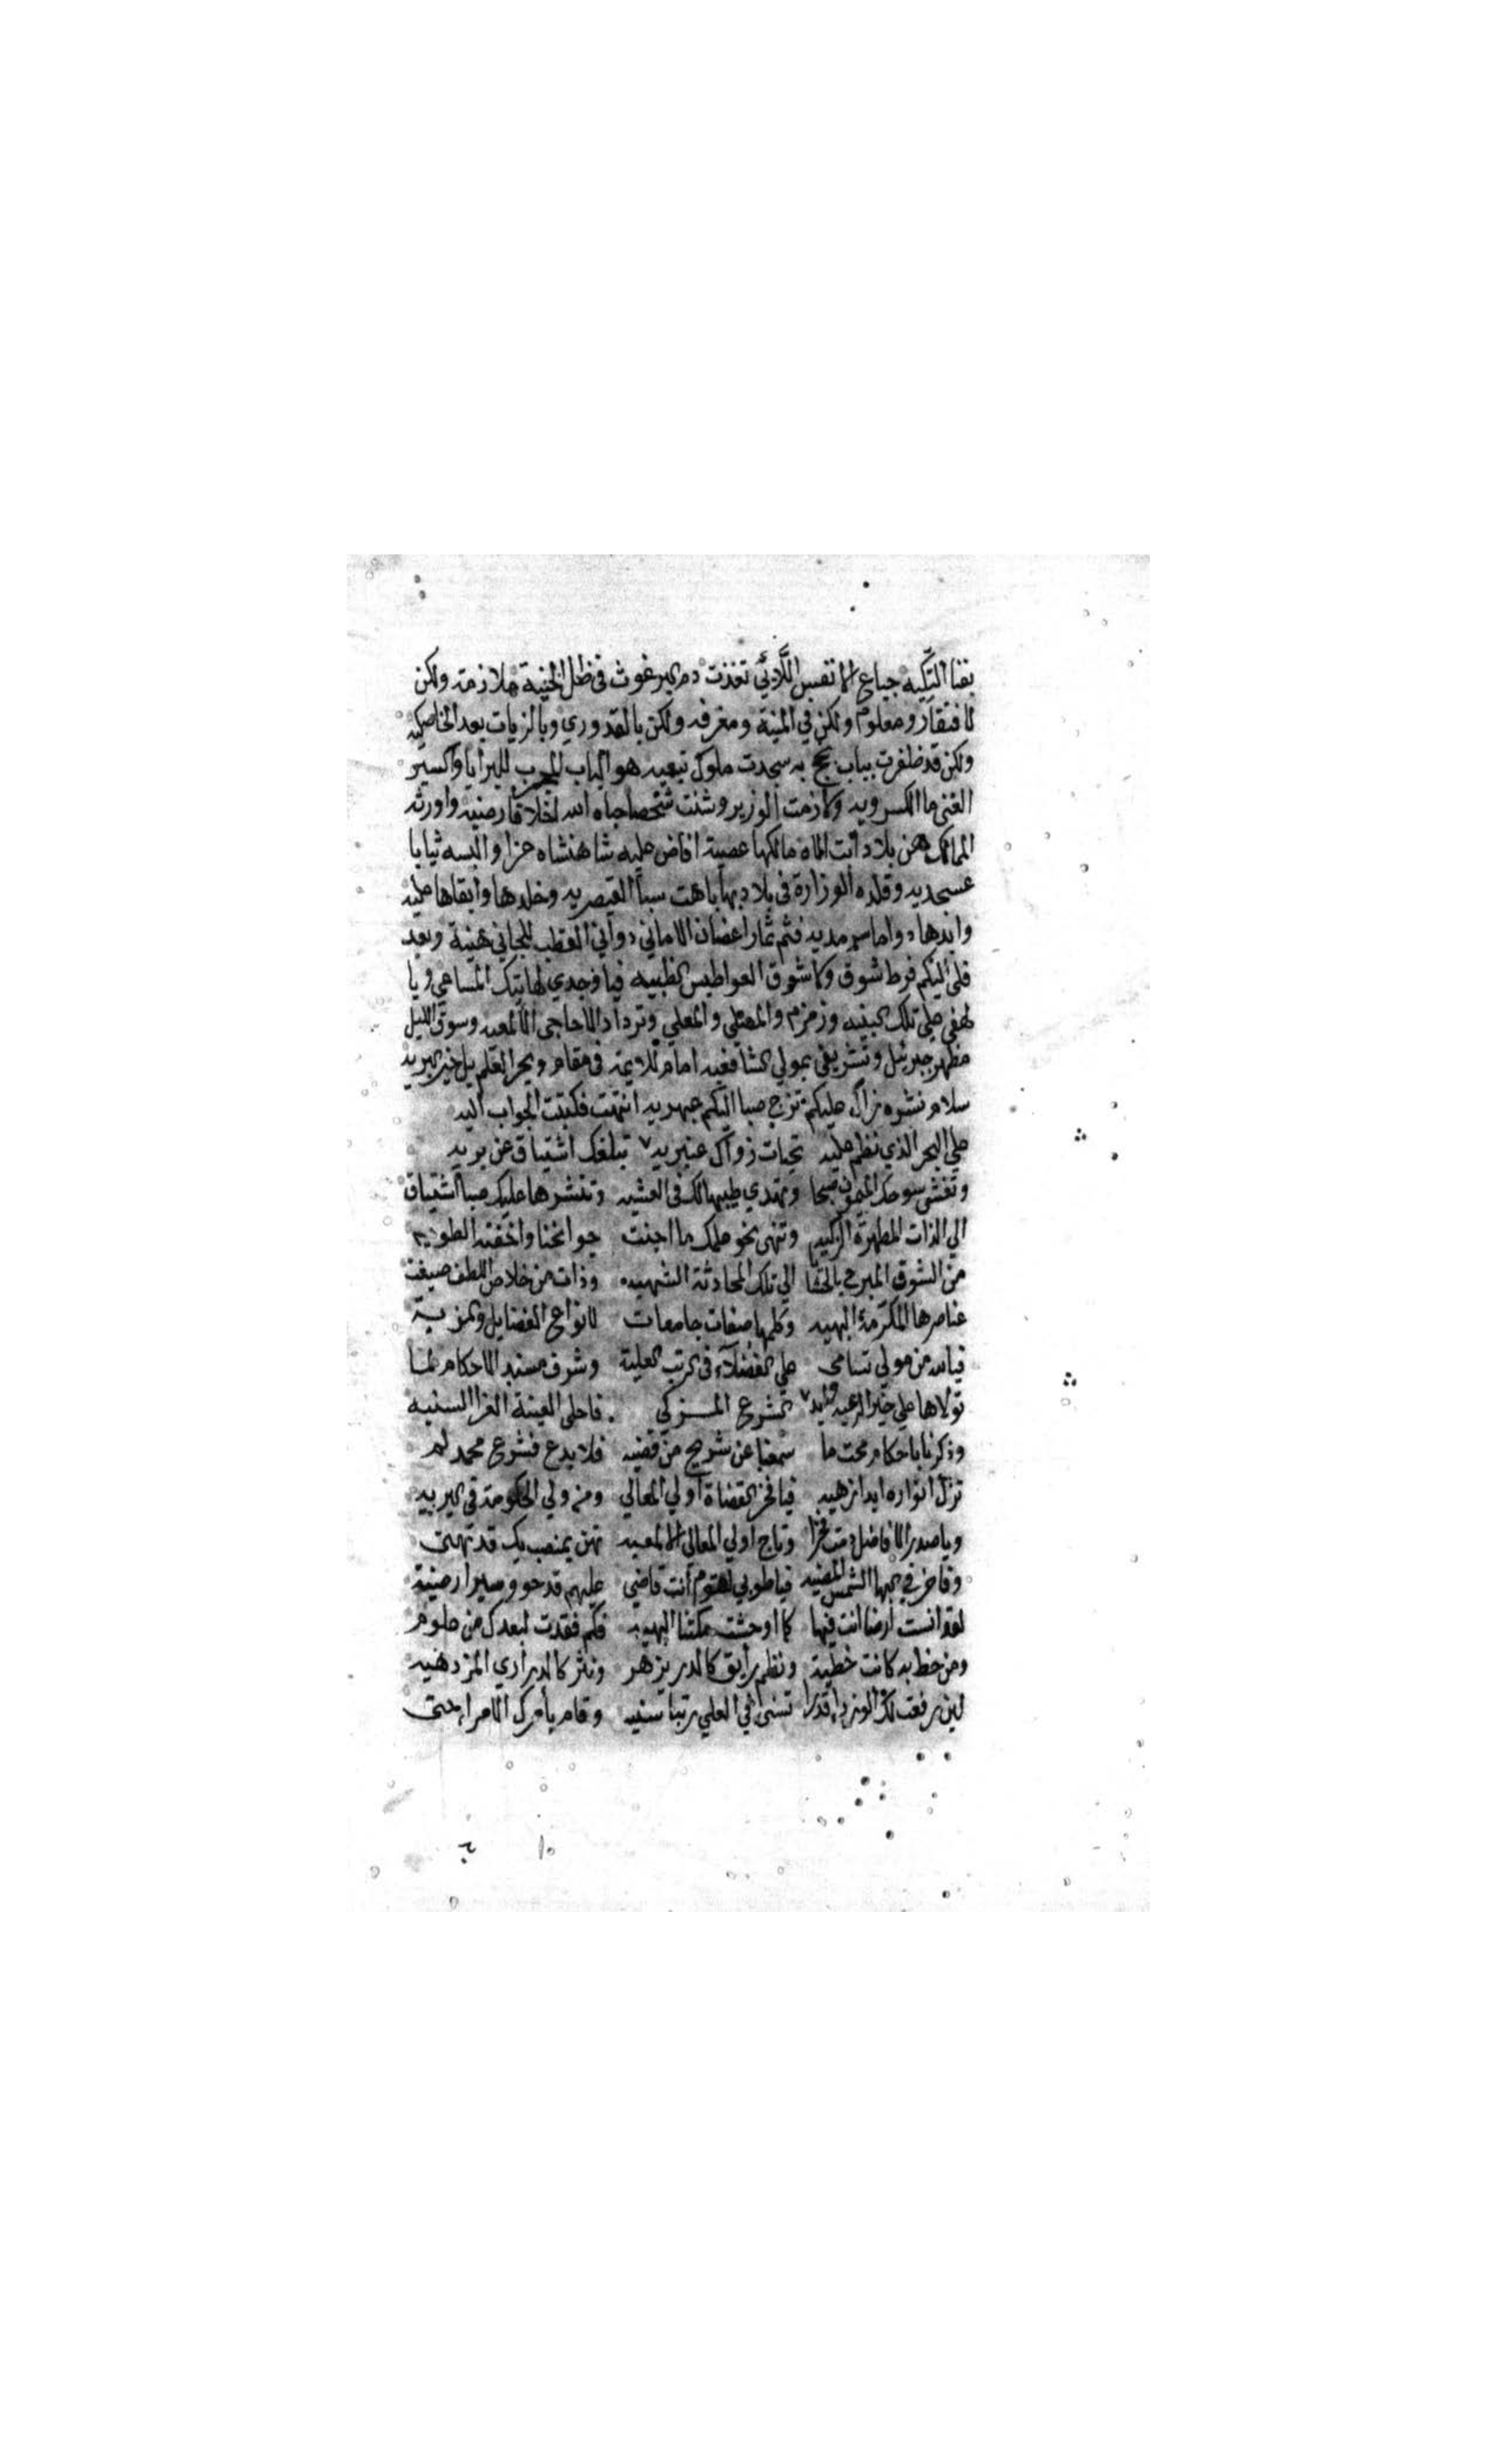 بفنا التكيه جياع الانفس اللائي تغذت دم البرغوث في ظل الحنية ملازمة ولكن
لافتقار ومعلوم ولكن في المنية ومغرفه ولكن بالقدوري وبالزيات بعد الخاصكيه
ولكن قد ظفرت بباب به سجدت ملوك تبعيه هو الباب المجرب للبرايا واكسير
الغني ما الكسرويه ولازمت الوزير وشنت شخصا حباه الله اخلاقا رضيه واورثه
الممالك من بلاد ابت الاه مالكها عصية افاض عليه شاهنشاه عزا والبسه ثيابا
عسجديه وقلده الوزارة في بلاد بها باهت سبأ القيصريه وخلدها وابقاها عليه
وابدها دواما سرمديه فثم ثمار اغصان الاماني دواني القطب للجاني هنية وبعد
فلي اليكم فرط شوق ولا شوق الظبيه فيا وجدي لهاتيك المساعي ويا
لهفي علي تلك البنيه وزمزم والمصلي والمعلي وترداد الاحاجي الالمعيه وسوق الليل
مظهر جبرئيل وتشريفي بمولي الشافعيه امام للايمة في مقام وبحر العلم بل خير البريه
سلام نشره زاك عليكم تزج صبا اليكم عبهريه انتهت فكتبت الجواب اليه
علي البحر الذي نظم عليه تحيات زواك عنبريه تبلغك اشتياق عن يريد
وتغشي سوحك الميمون صبحا وتهدي طيبها لك في العشيه وتنشرها عليك صبا اشتياق
الي الذات المطهرة الزكيه وتنهي نحو علمك ما اجنت جوانحنا واخفته الطويه
من الشوق المبرح بالحشا الي تلك المحادثة الشهيه وذات من خلاص اللطف صيغت
عناصرها المكرمة البهيه وكلها صفات جامعات لانواع الفضايل والمزية
فيالله من مولي تسامي علي الفضلاء في الرتب العلية وشرف مسند الاحكام لما
تولاها علي خير الرعيه الشرع المزكي فاحلي العينة الغرا السنيه
وذكرنا باحكام محت ما سمعنا عن شريح من قضيه فلا بدع فشرع محمد لم
تزل انواره ابدا زهيه فيا فخر القضاة اولي المعالي ومن ولي الحكومة في البريه
ويا صدر الافاضل دمت فخرا وتاج اولي المعالي الالمعيه تهن بمنصب بك قد تهني
وفاخر في بها الشمس المضيه فيا طوبي لقوم انت قاضي عليهم قد حووا سيرا رضية
لقد انست ارضا انت فيها كما اوحشت مكتنا البهيه فكم فقدت لبعدك من علوم
ومن حظ به كانت حظية ونظم رايق كالدر يزهر ونثر كالدراري المزدهيه
لين رفعت لك الوزراء قدرا تسني في العلي رتبا سنيه وقام بأمرك الامراء حتي